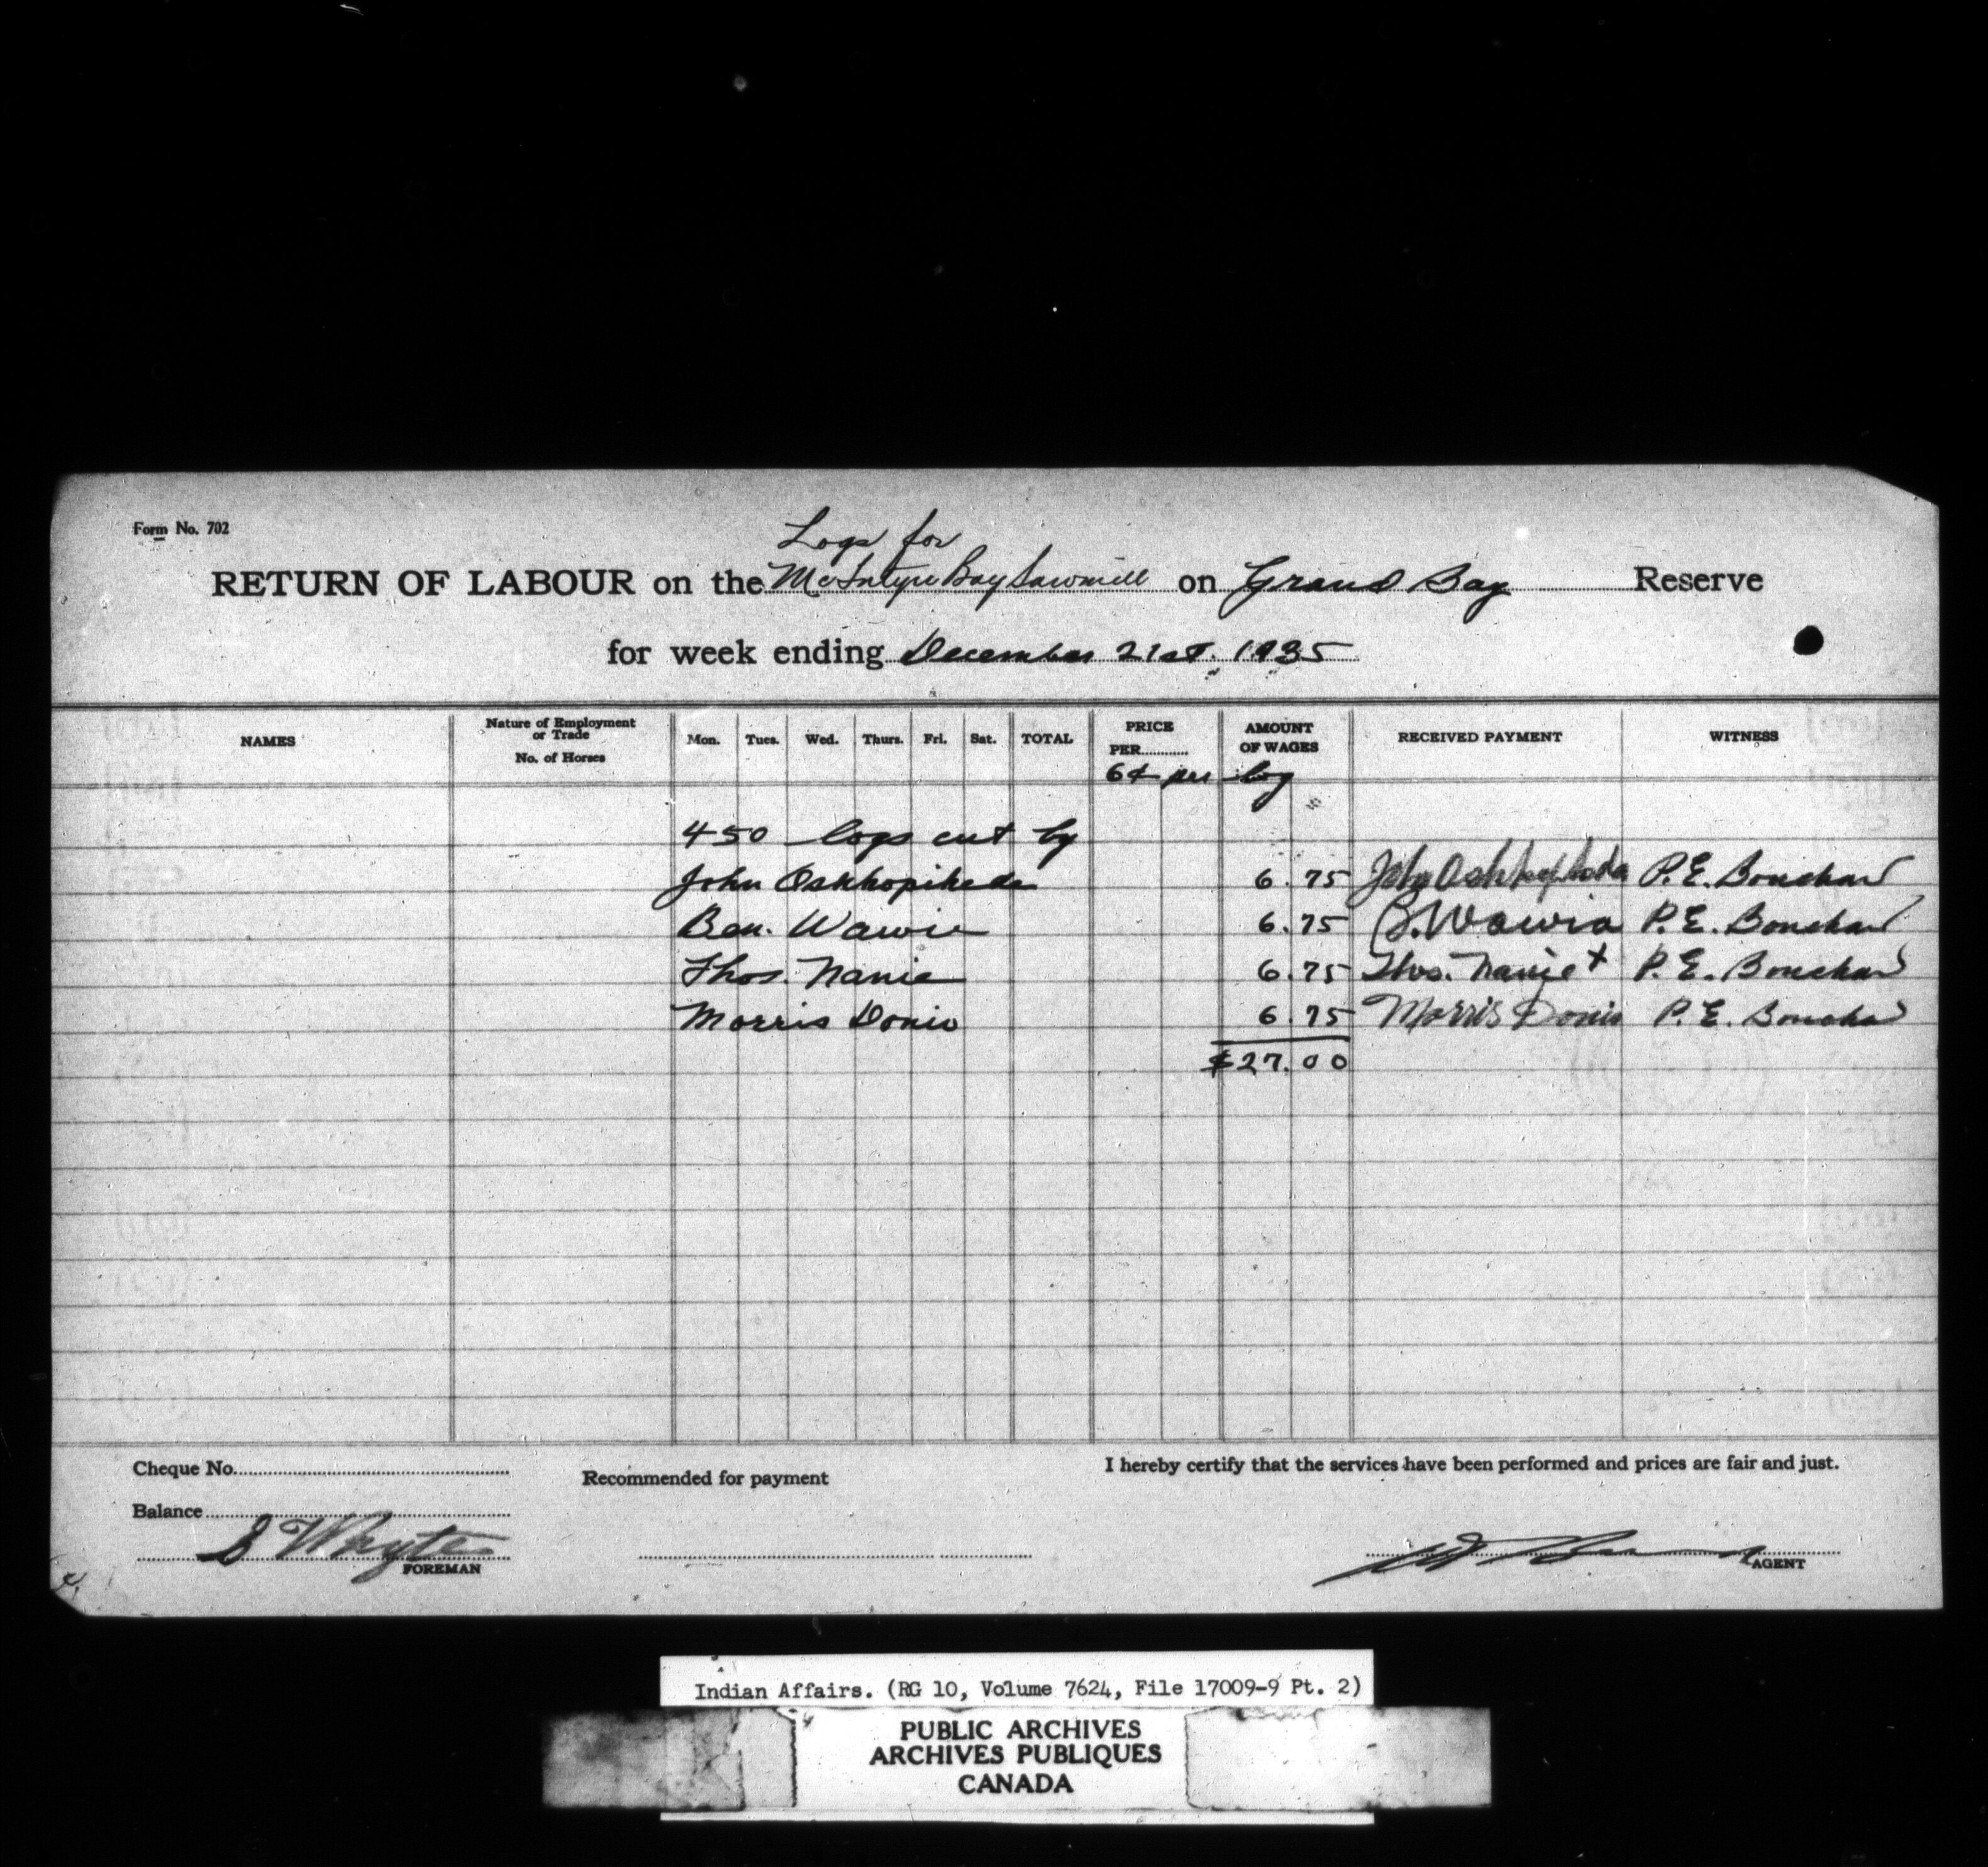 Form No. 702
Logs for
RETURN OF LABOUR on the McIntyre Bay Sawmill on Grand Bay Reserve
for week ending December 21st. 1935
NAMES Nature of Employment or Trade No. of Horses Mon. Tues. Wed. Thurs. Fri. Sat. TOTAL PRICE PER AMOUNT OF WAGES RECEIVED PAYMENT WITNESS
6¢ per log
450 logs cut by
John Oskhopikeda 6.75 John P. E. Bouchard
Ben. Wawie 6.75 B. Wawia P. E. Bouchard
Thos. Nanie 6.75 Thos. Nanie X P. E. Bouchard
Morris Donio 6.75 Morris Donio P. E. Bouchard
$27.00
Cheque No.
Recommended for payment
I hereby certify that the services have been performed and prices are fair and just.
Balance
S Whyte
FOREMAN
AGENT
Indian Affairs. (RG 10, Volume 7624, File 17009-9 Pt. 2)
PUBLIC ARCHIVES
ARCHIVES PUBLIQUES
CANADA